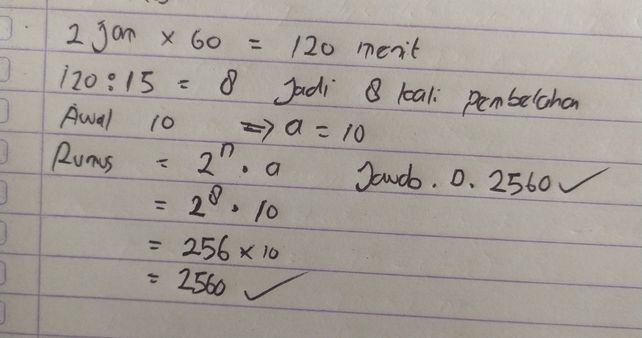 2 jam × 60 = 120 menit
120 : 15 = 8 Jadi 8 kali pembelahan
Awal 10 ⇒ a = 10
Rumus = 2ⁿ . a Jawab. D. 2560 ✓
= 2⁸ . 10
= 256 × 10
= 2560 ✓